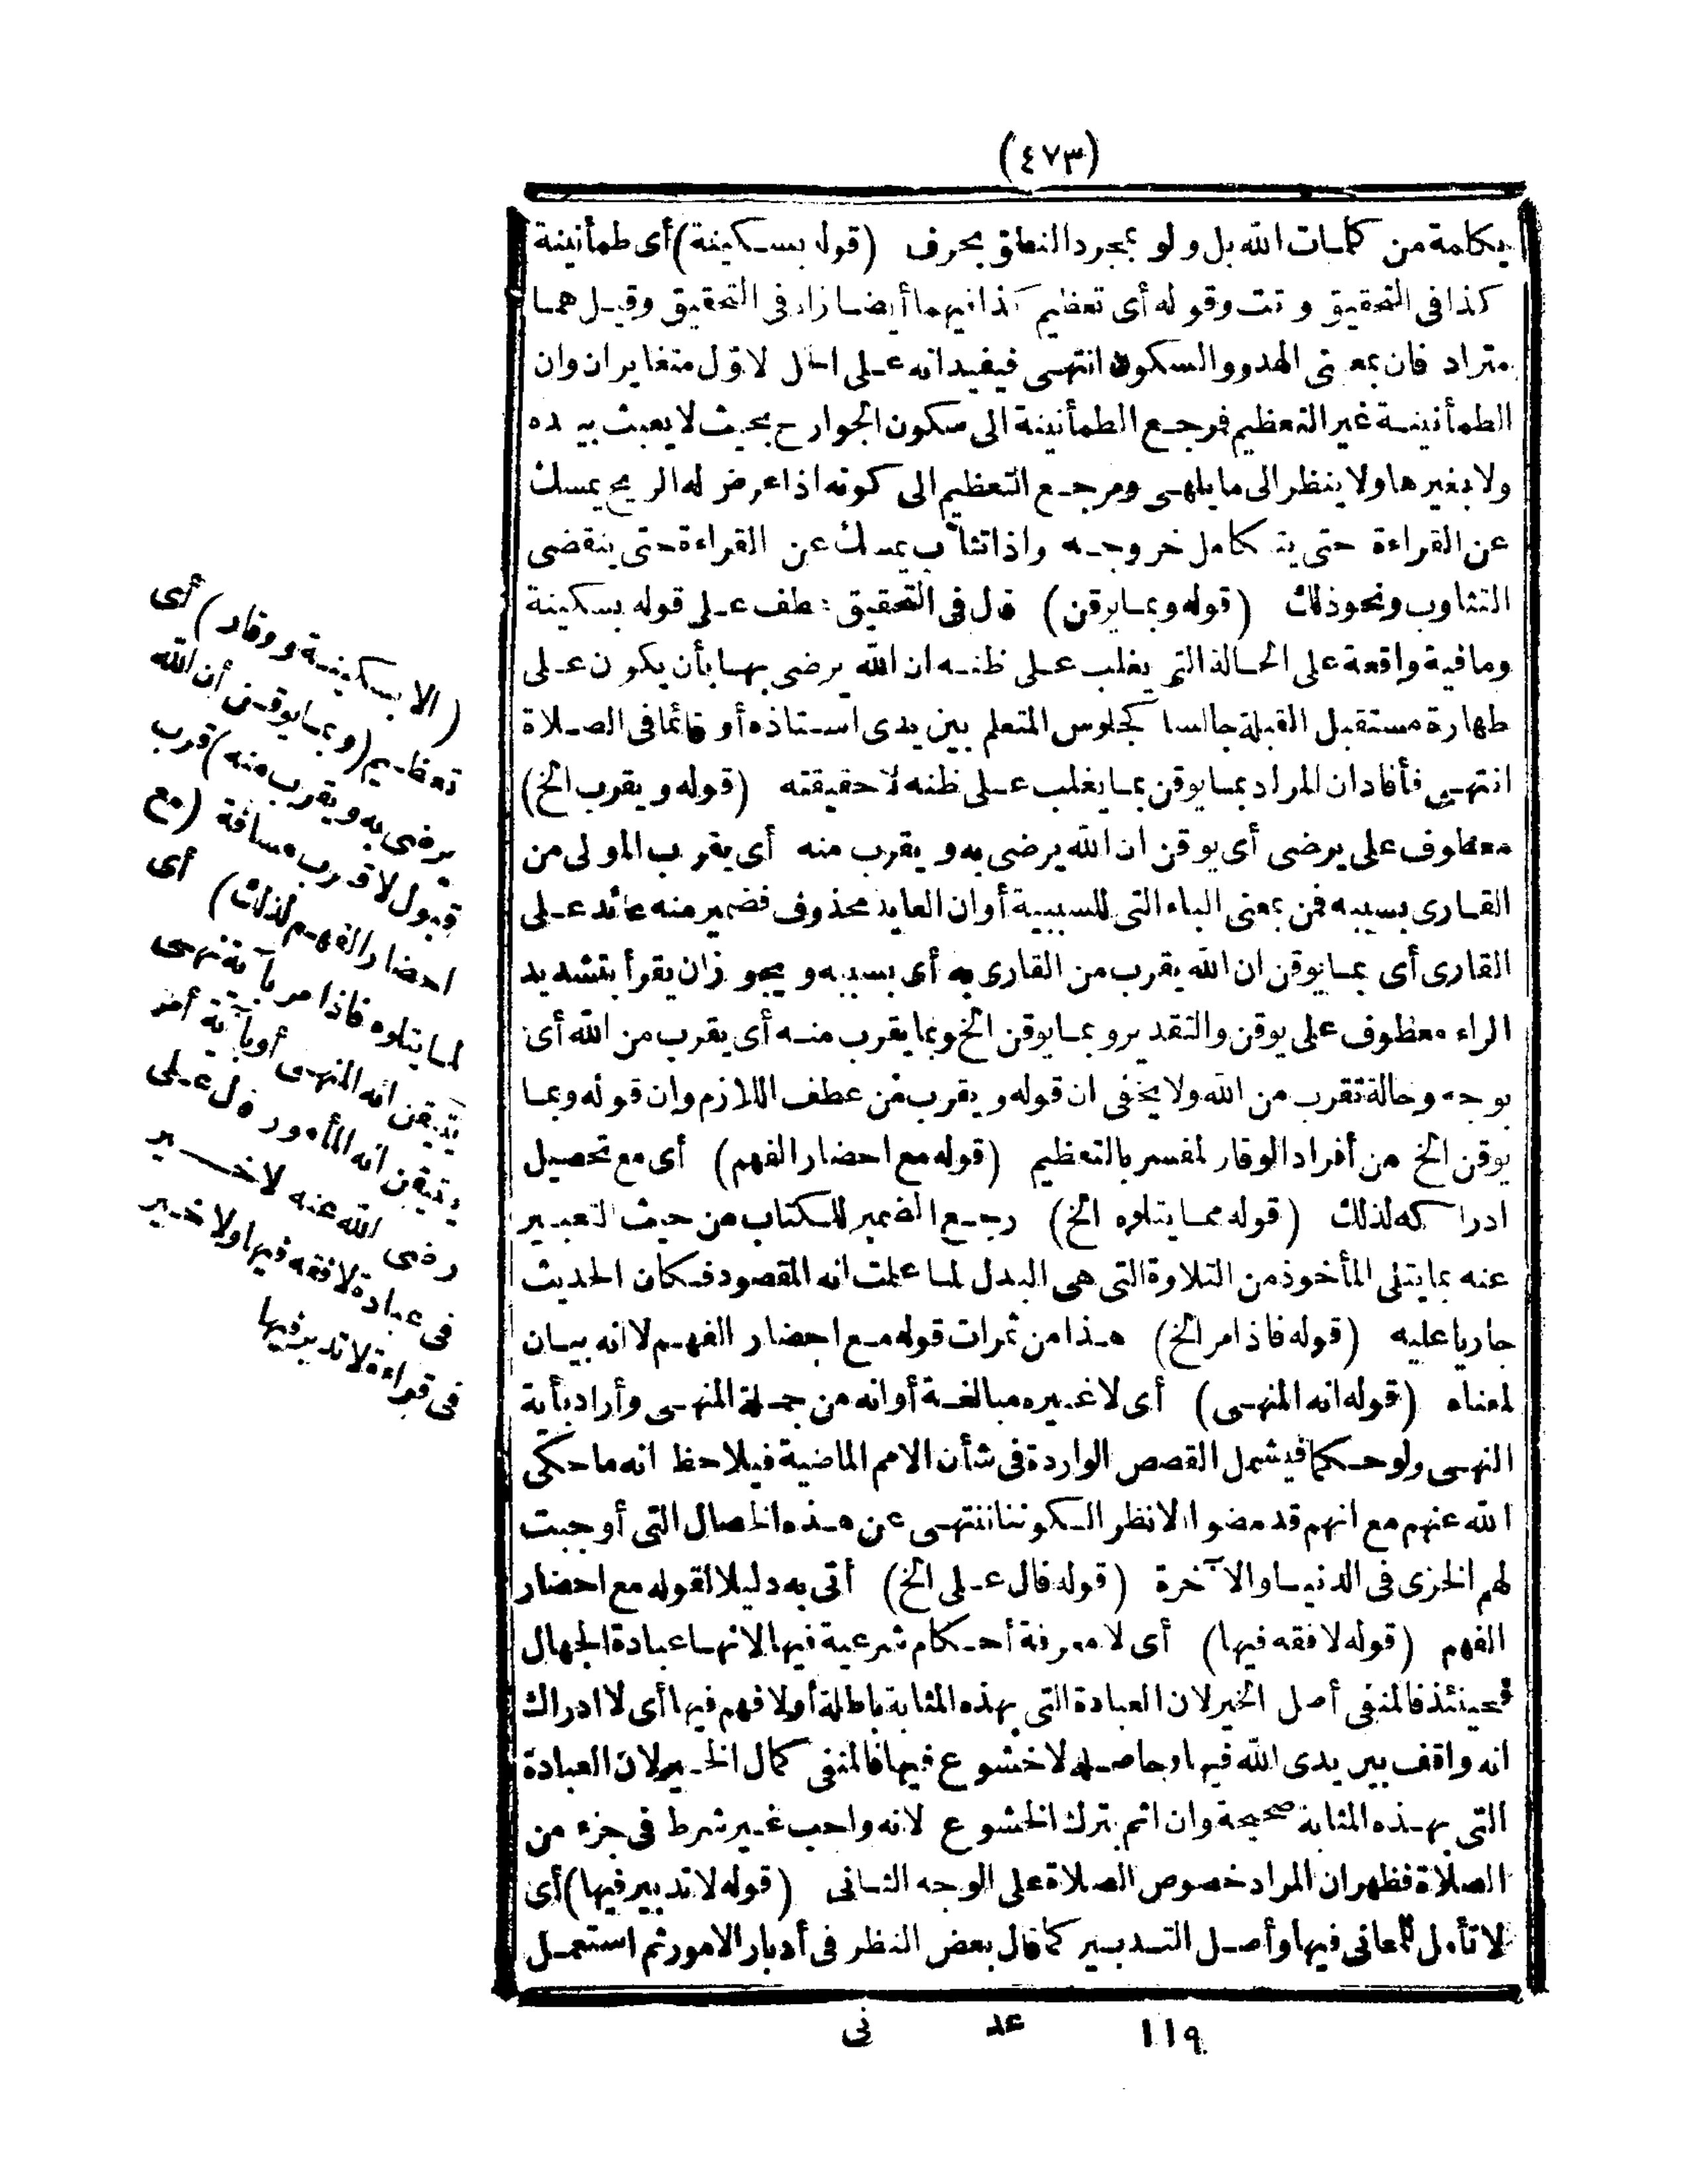 (٤٧٣)
بكلمة من كلمات الله بل ولو بمجرد النطق بحرف (قوله بسكينة) أى طمأنينة
كذا فى التحقيق و تت وقوله أى تعظيم كذا فيهما أيضا زاد فى التحقيق وقيل هما
مترادفان بمعنى الهدو والسكون انتهى فيفيد انه على الاول متغايران وان
الطمأنينة غير التعظيم فرجع الطمأنينة الى سكون الجوارح بحيث لا يعبث بيده
ولا بغيرها ولا ينظر الى ما يلهى ومرجع التعظيم الى كونه اذا عرض له الريح يمسك
عن القراءة حتى يتكامل خروجه واذا تثاءب يمسك عن القراءة حتى ينقضى
التثاوب ونحو ذلك (قوله وبما يوقن) قال فى التحقيق عطف على قوله بسكينة
وما فيه واقعة على الحالة التى يغلب على ظنه ان الله يرضى بها بأن يكون على
طهارة مستقبل القبلة جالسا كجلوس المتعلم بين يدى استاذه أو قائما فى الصلاة
انتهى فأفاد ان المراد بما يوقن بما يغلب على ظنه لا حقيقته (قوله ويقرب الخ)
معطوف على يرضى أى يوقن ان الله يرضى به ويقرب منه أى يقرب المولى من
القارى بسببه فمن بمعنى الباء التى للسببية أو ان العايد محذوف فضمير منه عائد على
القارى أى بما يوقن ان الله يقرب من القارى به أى بسببه ويجوز ان يقرأ بتشديد
الراء معطوف على يوقن والتقدير وبما يوقن الخ وبما يقرب منه أى يقرب من الله أى
بوجه وحالة تقرب من الله ولا يخفى ان قوله ويقرب من عطف اللازم وان قوله وبما
يوقن الخ من أفراد الوقار لمفسر بالتعظيم (قوله مع احضار الفهم) أى مع تحصيل
ادراكه لذلك (قوله مما يتلوه الخ) رجع الضمير للكتاب من حيث التعبير
عنه بما يتلى المأخوذ من التلاوة التى هى البدل لما علمت انه المقصود فكان الحديث
جاريا عليه (قوله فاذا مر الخ) هذا من ثمرات قوله مع احضار الفهم لا انه بيان
لمعناه (قوله انه المنهى) أى لا غيره مبالغة أو انه من جملة المنهى وأراد بأية
النهى ولو حكما فيشمل القصص الواردة فى شأن الامم الماضية فيلاحظ انه ما حكى
الله عنهم مع انهم قد مضوا الا نظرا لكوننا ننتهى عن هذه الخصال التى أوجبت
لهم الخزى فى الدنيا والآخرة (قوله قال على الخ) أتى به دليلا لقوله مع احضار
الفهم (قوله لا فقه فيها) أى لا معرفة أحكام شرعية فيها لانها عبادة الجهال
فحينئذ فالمنفى أصل الخير لان العبادة التى بهذه المثابة باطلة أو لا فهم فيها أى لا ادراك
انه واقف بين يدى الله فيها وحاصله لا خشوع فيها فالمنفى كمال الخير لان العبادة
التى بهذه المثابة صحيحة وان اثم بترك الخشوع لانه واجب غير شرط فى جزء من
الصلاة فظهر ان المراد خصوص الصلاة على الوجه الثانى (قوله لا تدبير فيها) أى
لا تأمل لمعانى فيها وأصل التدبير كما قال بعض النظر فى أدبار الامور ثم استعمل
١١٩ عد نى
(الا بسكينة ووقار) أى
تعظيم (وبما يوقن أن الله
يرضى به ويقرب منه) قرب
قبول لا قرب مسافة (مع
احضار الفهم لذلك) أى
لما يتلوه فاذا مر بآية نهى
تيقن انه المنهى أو بآية أمر
تيقن انه المأمور قال على
رضى الله عنه لا خير
فى عبادة لا فقه فيها ولا خير
فى قراءة لا تدبر فيها